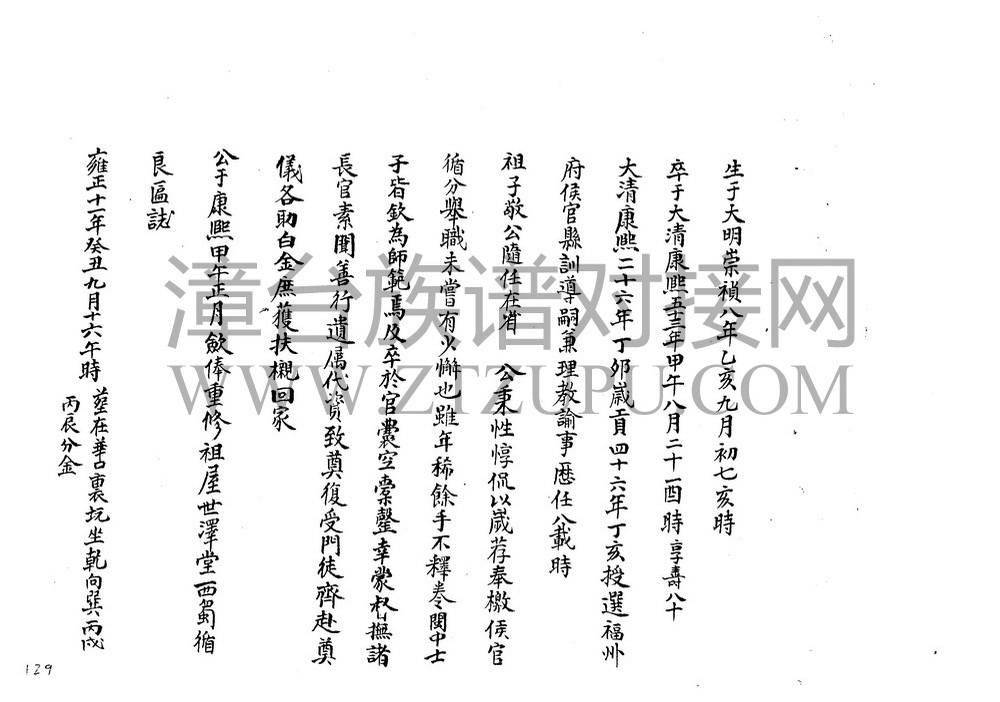 生于大明崇禎八年乙亥九月初七亥時
卒于大清康熙五十三年甲午八月二十一酉時享壽八十
大清康熙二十六年丁卯歲貢四十六年丁亥授選福州
府侯官縣訓導嗣兼理教諭事歷任八載時
祖子敬公隨任在省 公秉性惇侃以歲荐奉檄侯官
循分舉職未嘗有少懈也雖年稀餘手不釋卷閩中士
子皆欽為師範焉及卒於官囊空橐罄幸蒙撫諸
長官素聞善行遺属代資致奠復受門徒齊赴奠
儀各助白金庶獲扶櫬回家
公于康熙甲午正月斂俸重修祖屋世澤堂西蜀循
良匾誌
雍正十一年癸丑九月十六午時 塟在華口裏坑坐乾向巽丙戌
丙辰分金
129
漳台族谱对接网
WWW.ZTZUPU.COM